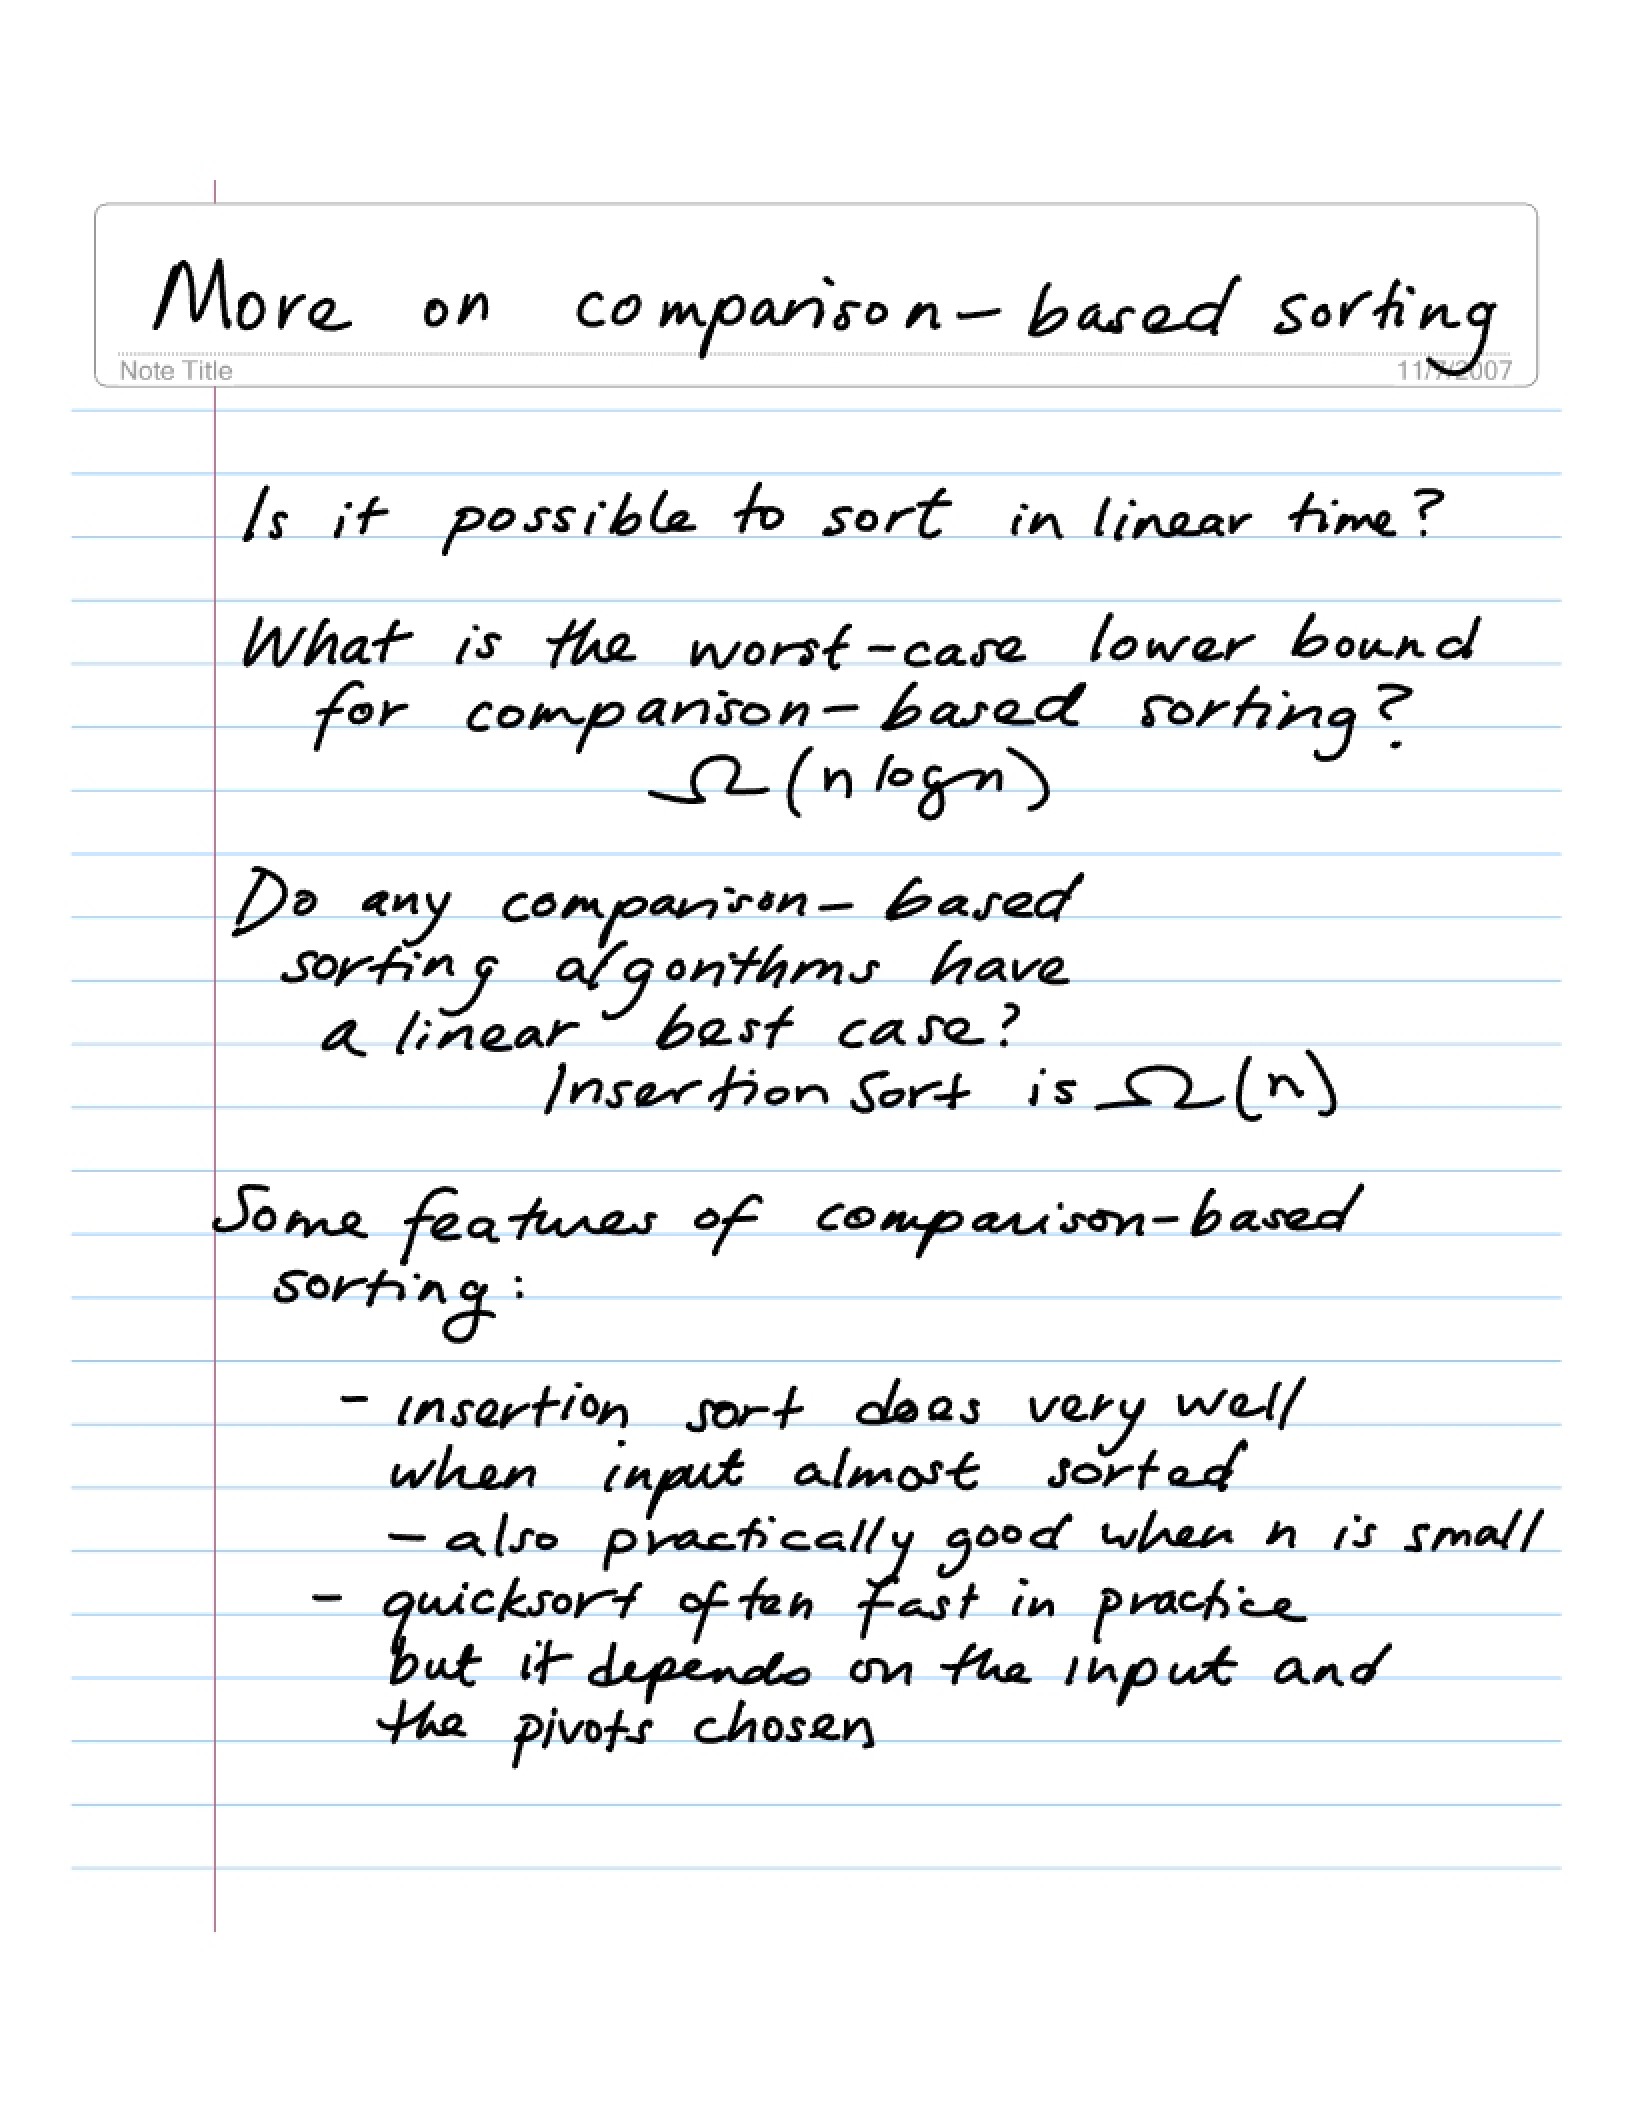 More on comparison-based sorting
Note Title
11/7/2007
Is it possible to sort in linear time?
What is the worst-case lower bound
for comparison-based sorting?
Ω(n log n)
Do any comparison-based
sorting algorithms have
a linear best case?
Insertion Sort is Ω(n)
Some features of comparison-based
sorting:
- insertion sort does very well
when input almost sorted
- also practically good when n is small
- quicksort often fast in practice
but it depends on the input and
the pivots chosen